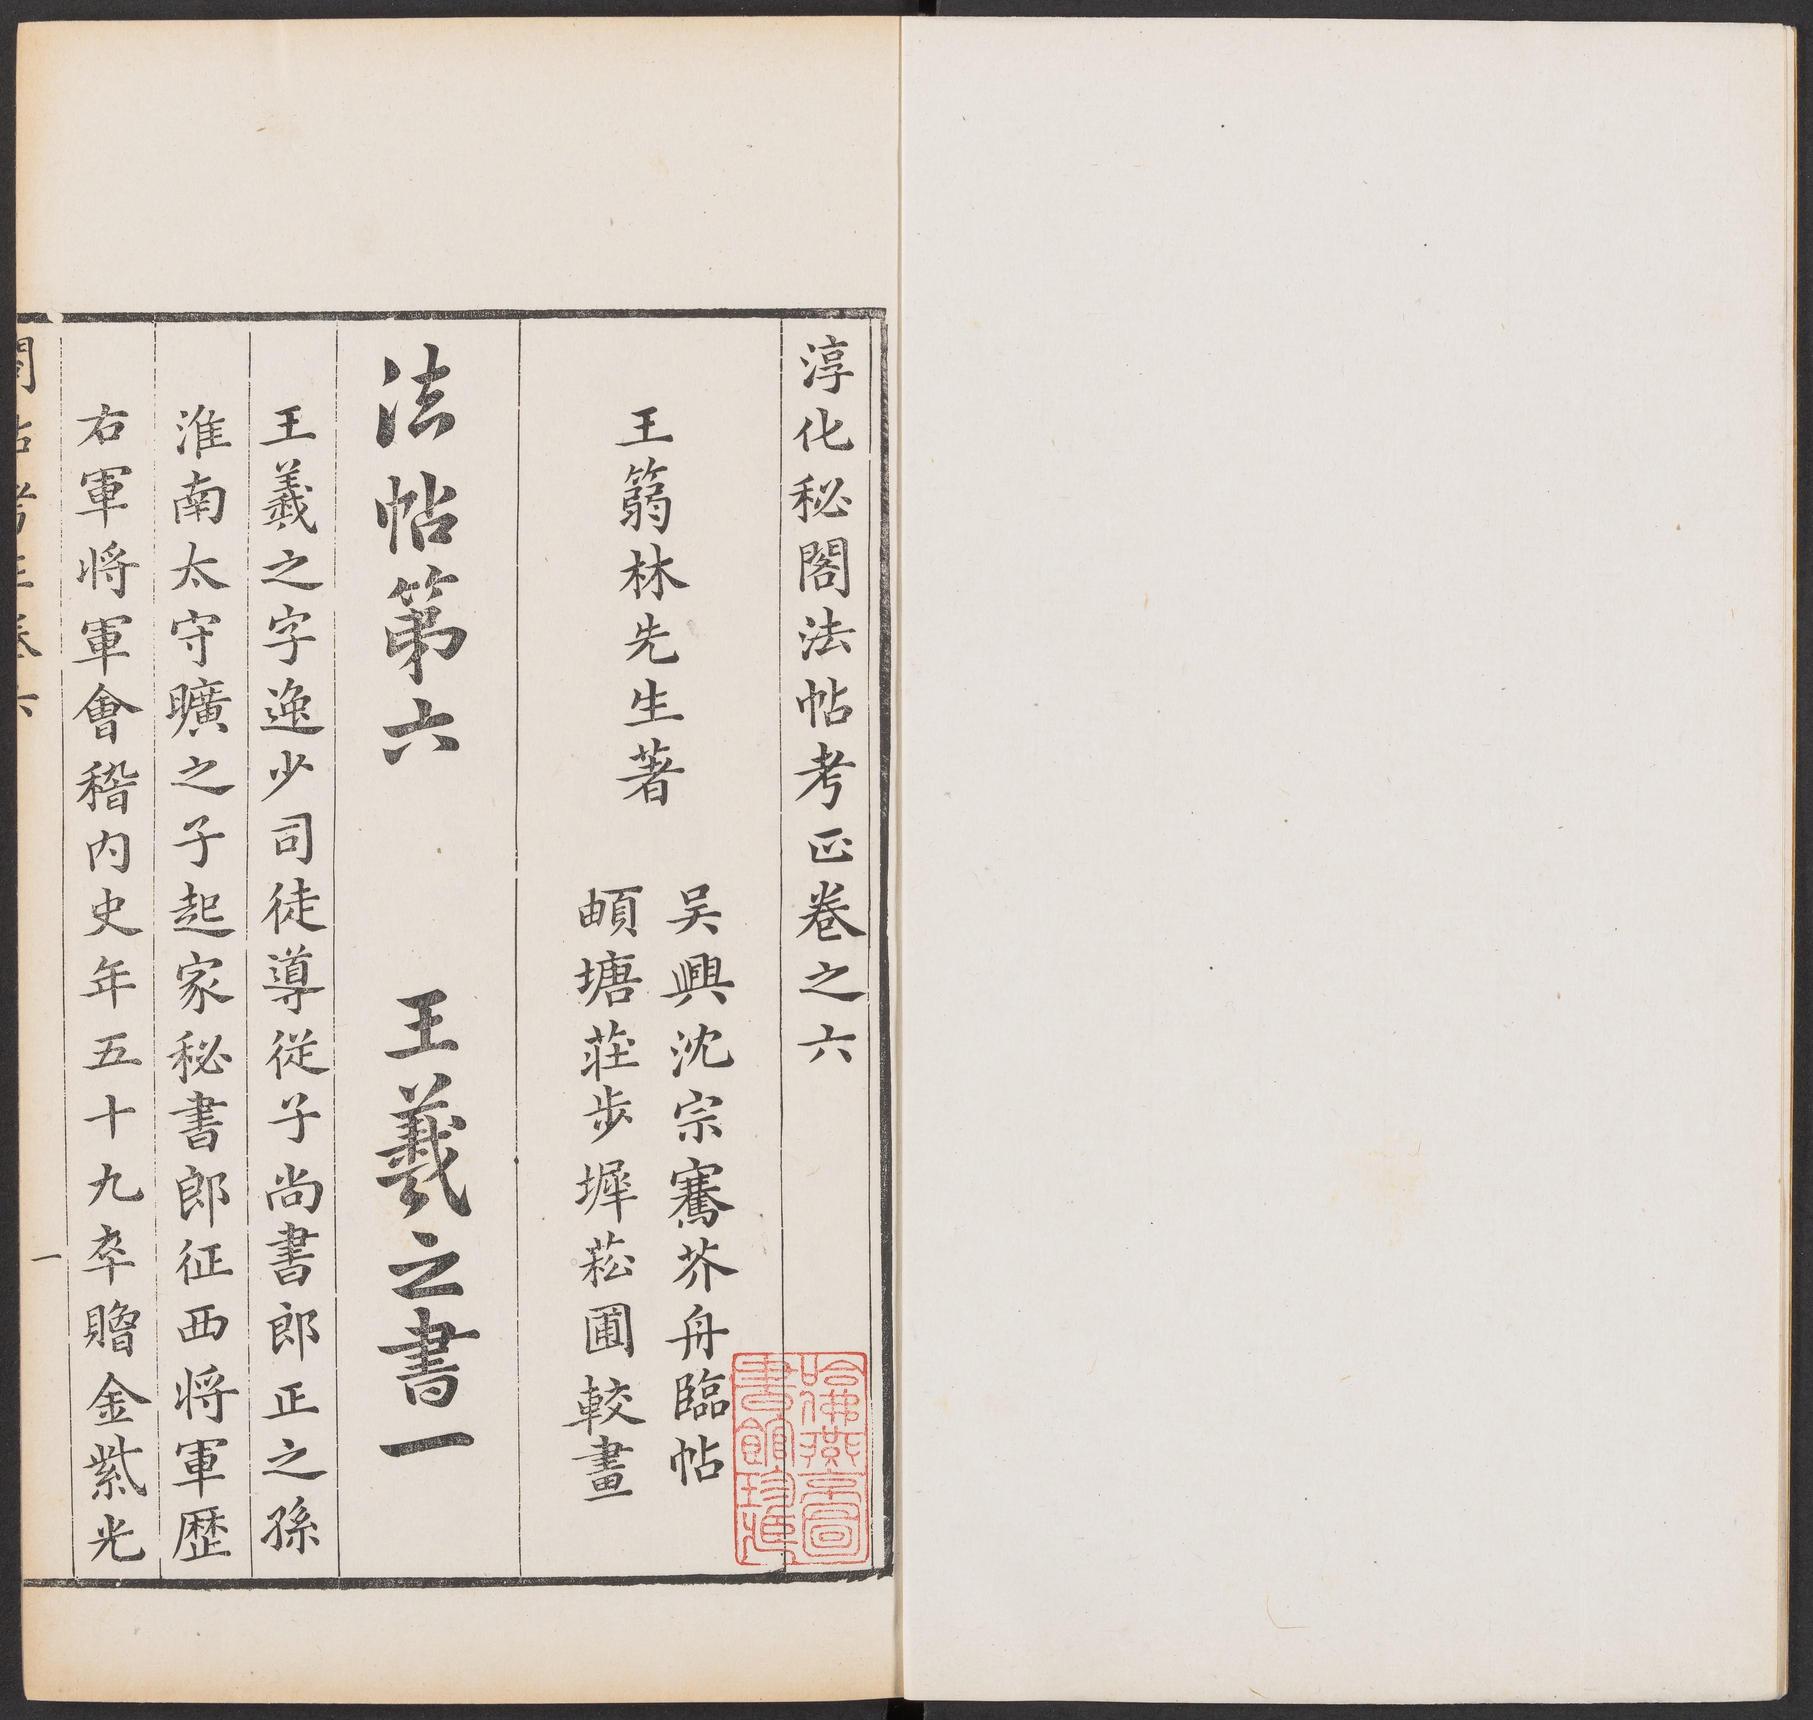 淳化秘閣法帖考正卷之六
王篛林先生著
吴興沈宗騫芥舟臨帖
頔塘莊步墀菘圃較畫
法帖第六 王羲之書一
王羲之字逸少司徒導從子尚書郎正之孫
淮南太守曠之子起家秘書郎征西將軍歷
右軍將軍會稽内史年五十九卒贈金紫光
閣帖考正卷六
一
哈佛燕京圖
書館珍藏